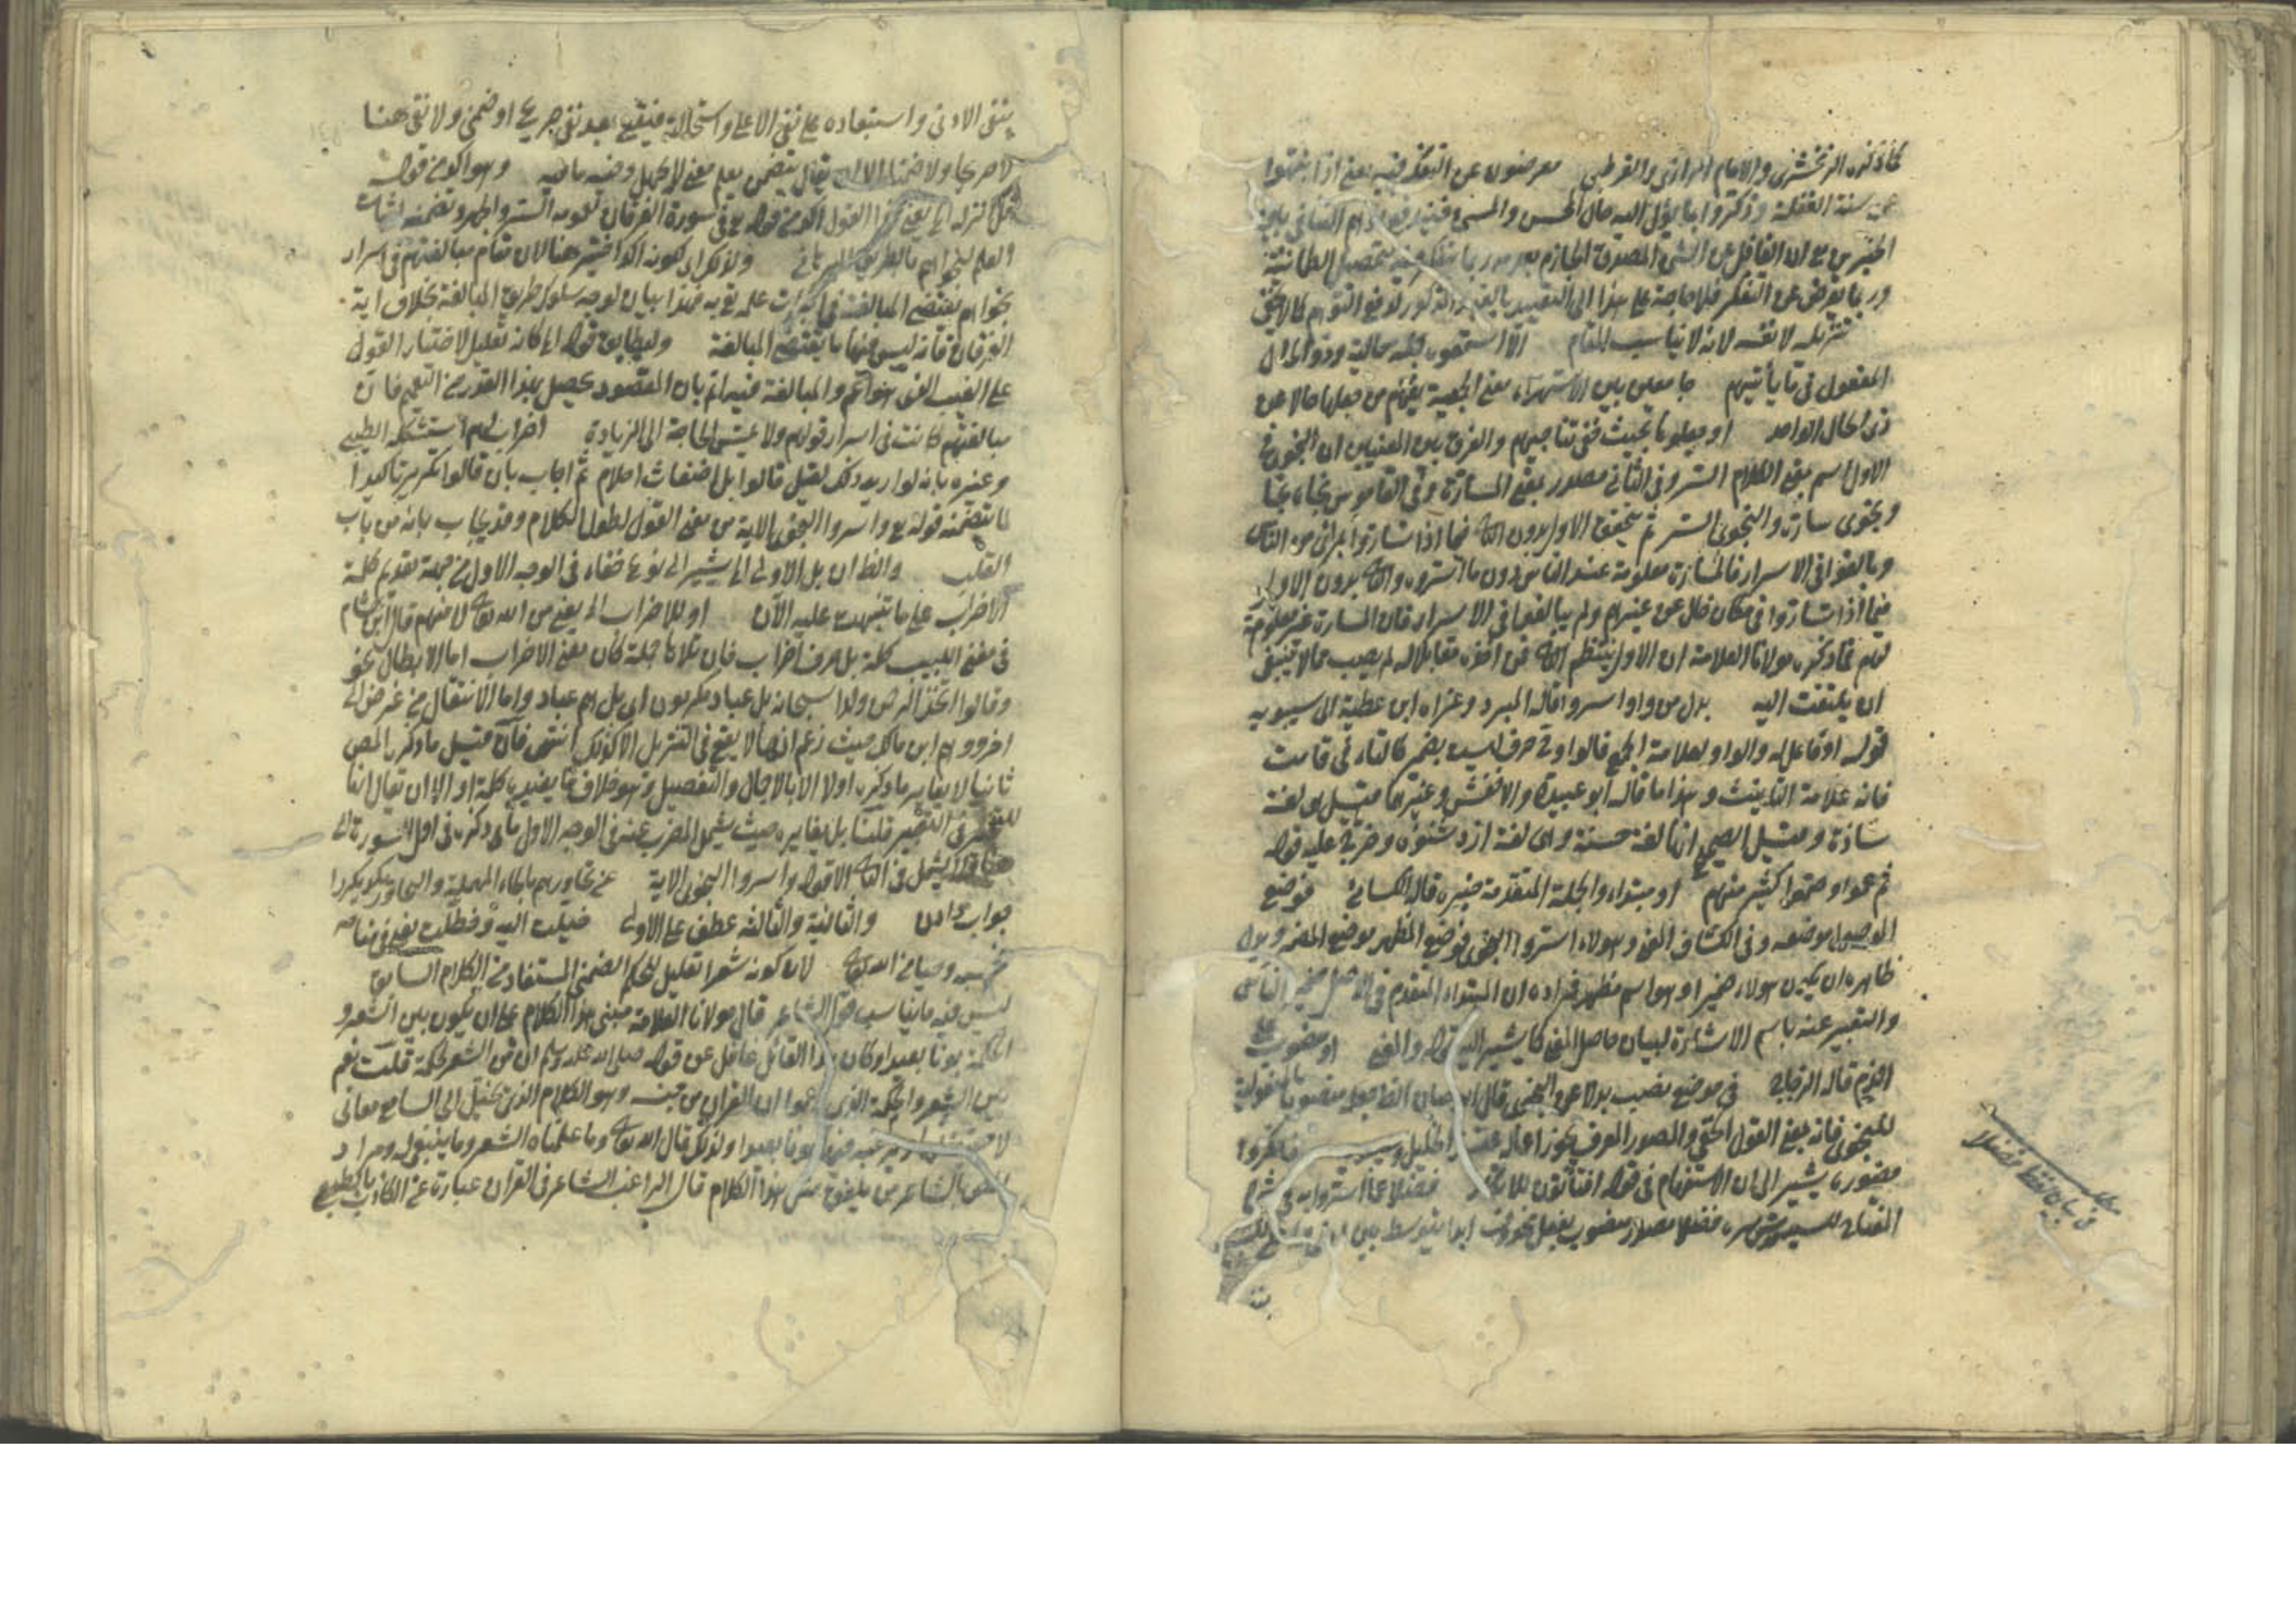 كما ذكره الزمخشري والامام الرازي والقرطبي معرضون عن التفكر فيه يعنى اذا نبهوا
عن سنة الغفلة وذكروا بما يؤل اليه حال المحسن والمسئ فيندفع توهم التنافي بين
الخبرين مع ان الغافل عن الشئ المصدق الجازم به ربما يتفكر فيه لتحصيل الطمانينة
وربما يعرض عن التفكر فلا حاجة على هذا الى التقييد بالقيد المذكور لدفع التوهم كما لا يخفى
تنزيله لا نفسه لانه لا يناسب المقام الا استمعوه جملة حالية وذو الحال
المفعول في ما يأتيهم جامعين بين الاستهزاء معنى الجمعية يفهم من جعلهما حالا عن
ذى الحال الواحد او جعلوها بحيث خفى تناجيهم والفرق بين المعنيين ان النجوى في
الاول اسم بمعنى الكلام السر وفى الثاني مصدر بمعنى المسارة وفى القاموس نجاه نجا
ونجوى ساره والنجوى السر ثم يتحقق الاول بدون الثاني فيما اذا تساروا بمرأى من الناس
وبالغوا فى الاسرار فالمسارة معلومة عند الناس دون ما اسروه والثاني بدون الاول
فيما اذا تساروا فى مكان خال عن غيرهم ولم يبالغوا فى الاسرار فان المسارة غير معلومة
لهم فما ذكره مولانا العلامة ان الاول ينتظم الثاني فمن اخذه مقابلا له لم يصب مما لا ينبغى
ان يلتفت اليه بدل من واو اسروا قاله المبرد وعزاه ابن عطية الى سيبويه
قوله او فاعل له والواو لعلامة الجمع قالوا وفى حرف ليست بضمير كالتاء فى قامت
فانه علامة التانيث وهذا ما قاله ابو عبيدة والاخفش وغيرهما قيل هى لغة
شاذة وقيل الصحيح انها لغة حسنة وهى لغة ازد شنؤه وخرج عليه قوله
ثم عموا وصموا كثير منهم او مبتداء والجملة المتقدمة خبره قاله الكسائى فوضع
الموصول موضعه وفى الكشاف المعنى وهولاء اسروا النجوى فوضع المظهر موضع المضمر
ظاهره ان يكون هولاء ضمير او هو اسم مظهر فمراده ان المبتداء المتقدم فى الاصل ضمير الناس
والتعبير عنه باسم الاشارة لبيان حاصل المعنى كما يشير اليه قوله والمعنى او منصوب على
الذم قاله الزجاج فى موضع نصب بدلا عن النجوى قال
للنجوى فانه بمعنى القول الخفى والمصدر المعرف يجوز اعماله عند الخليل وسيبويه فانكروا
حضوره يشير الى ان الاستفهام فى قوله افتأتون للانكار فضلا عما اسروا به فى شرح
المفتاح للسيد قدس سره فضلا مصدر منصوب بفعل محذوف ابدا يتوسط بين
مطلب
فى بيان لفظ فضلا
بنفى الادنى واستبعاده على نفى الاعلى واستحالته فيقع بعد نفى صريح او ضمنى ولا نفى هنا
لا صريحا ولا ضمنا الا ان يقال يتضمن يعلم معنى لا يجهل وفيه ما فيه وهو اكد من قوله
قل انزله الى يعنى هذا القول اكد من قوله فى سورة الفرقان لعمومه السر والجهر وتضمنه اثبات
العلم لنجواهم بالطريق البرهانى ولا يراد كونه اكد اختير هنا لان مقام مبالغتهم فى اسرار
نجواهم يقتضى المبالغة فى اثبات علمه به فهذا بيان لوجه سلوك طريق المبالغة بخلاف اية
الفرقان فانه ليس فيها ما يقتضى المبالغة وليطابق قوله الى كانه تعليل لاختيار القول
على الغيب المبالغة فيه اتم بان المقصود يحصل بهذا القدر من التعميم فان
مبالغتهم كانت فى اسرار قولهم ولا تمس الحاجة الى الزيادة اضراب لهم استشكله الطيبى
وغيره بانه لو اريد ذلك لقيل قالوا بل اضغاث احلام ثم اجاب بان قالوا تكرير تاكيدا
لما يتضمنه قوله واسروا النجوى الاية من معنى القول لطول الكلام وقد يجاب بانه من باب
القلب والظ ان بل الاولى الى يشير الى نوع خفاء فى الوجه الاول من جهة تقديم كلمة
الاضراب على ما تنبهت عليه الان او للاضراب الى يعنى من الله تعالى لا منهم قال ابن هشام
فى مغنى اللبيب كلمة بل حرف اضراب فان تلاها جملة كان معنى الاضراب اما الابطال نحو
وقالوا اتخذ الرحمن ولدا سبحانه بل عباد مكرمون اى بل هم عباد واما الانتقال من غرض الى
اخر ووهم ابن مالك حيث زعم انها لا يقع فى التنزيل الا كذلك انتهى فان قيل ما ذكره المص
ثانيا لا يغاير ما ذكره اولا الا بالاجمال والتفصيل وهو خلاف ما يفيده كلمة او الا ان يقال انها
للتخيير فى التعبير قلنا بل يغايره حيث يشمل المضرب عنه فى الوجه الاول ما ذكره فى اول السورة الى
يشمل فى الثاني الا قوله واسروا النجوى الاية عن تحاورهم بالحاء المهملة
جواب والثانية والثالثة عطف على الاولى خيلت اليه وخطلت
من الله تعالى لان كونه شعرا تعليل للحكم الضمنى المستفاد من الكلام السابق
ليس فيه ما يناسب قول الشاعر قال مولانا العلامة مبنى هذا الكلام على ان يكون بين الشعر و
الحكمة بونا بعيدا وكان هذا القائل غافل عن قوله صلى الله عليه وسلم ان من الشعر لحكمة قلت نعم
بين الشعر والحكمة الذى ان القران من وهو الكلام الذى يخيل الى السامع معانى
لا حقيقة لها بونا بعيدا ولذلك قال الله تعالى وما علمناه الشعر وما ينبغى له ومراد
المص بالشاعر من يلفق مثل هذا الكلام قال الراغب الشاعر فى القران عبارة عن الكاذب بالطبع